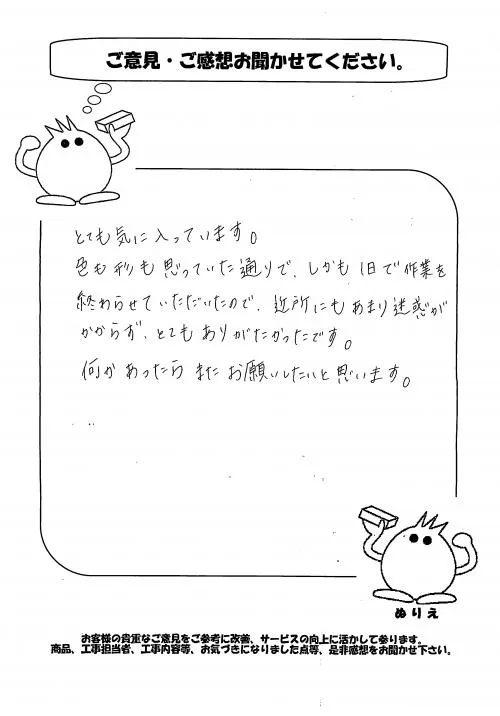 ご意見・ご感想お聞かせてください。
とても気に入っています。
色も形も思っていた通りで、しかも1日で作業を
終わらせていただいたので、近所にもあまり迷惑が
かからず、とてもありがたかったです。
何かあったらまたお願いしたいと思います。
ぬりえ
お客様の貴重なご意見をご参考に改善、サービスの向上に活かして参ります。
商品、工事担当者、工事内容等、お気づきになりました点等、是非感想をお聞かせ下さい。